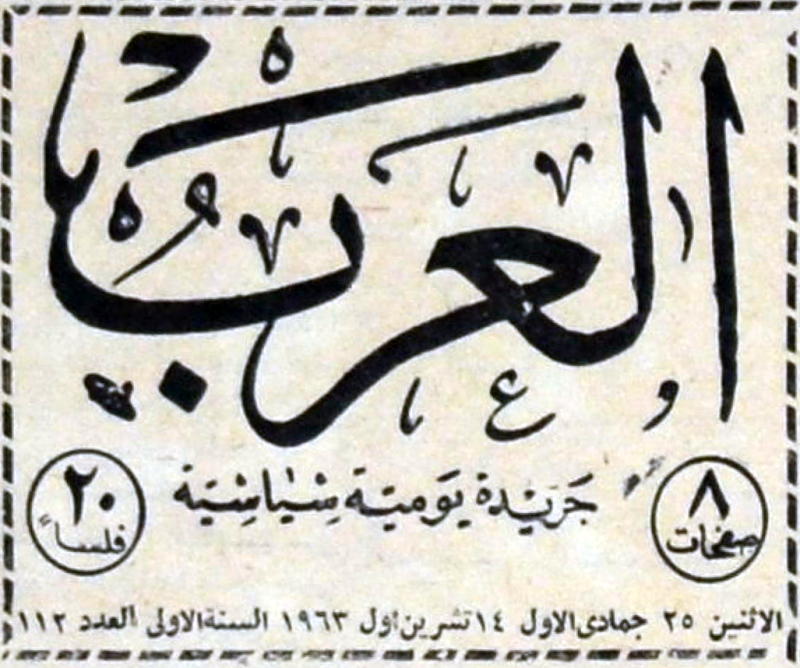 العرب
جريدة يومية سياسية
٨ صفحات
٢٠ فلسا
الاثنين ٢٥ جمادى الاول ١٤ تشرين اول ١٩٦٣ السنة الاولى العدد ١١٢